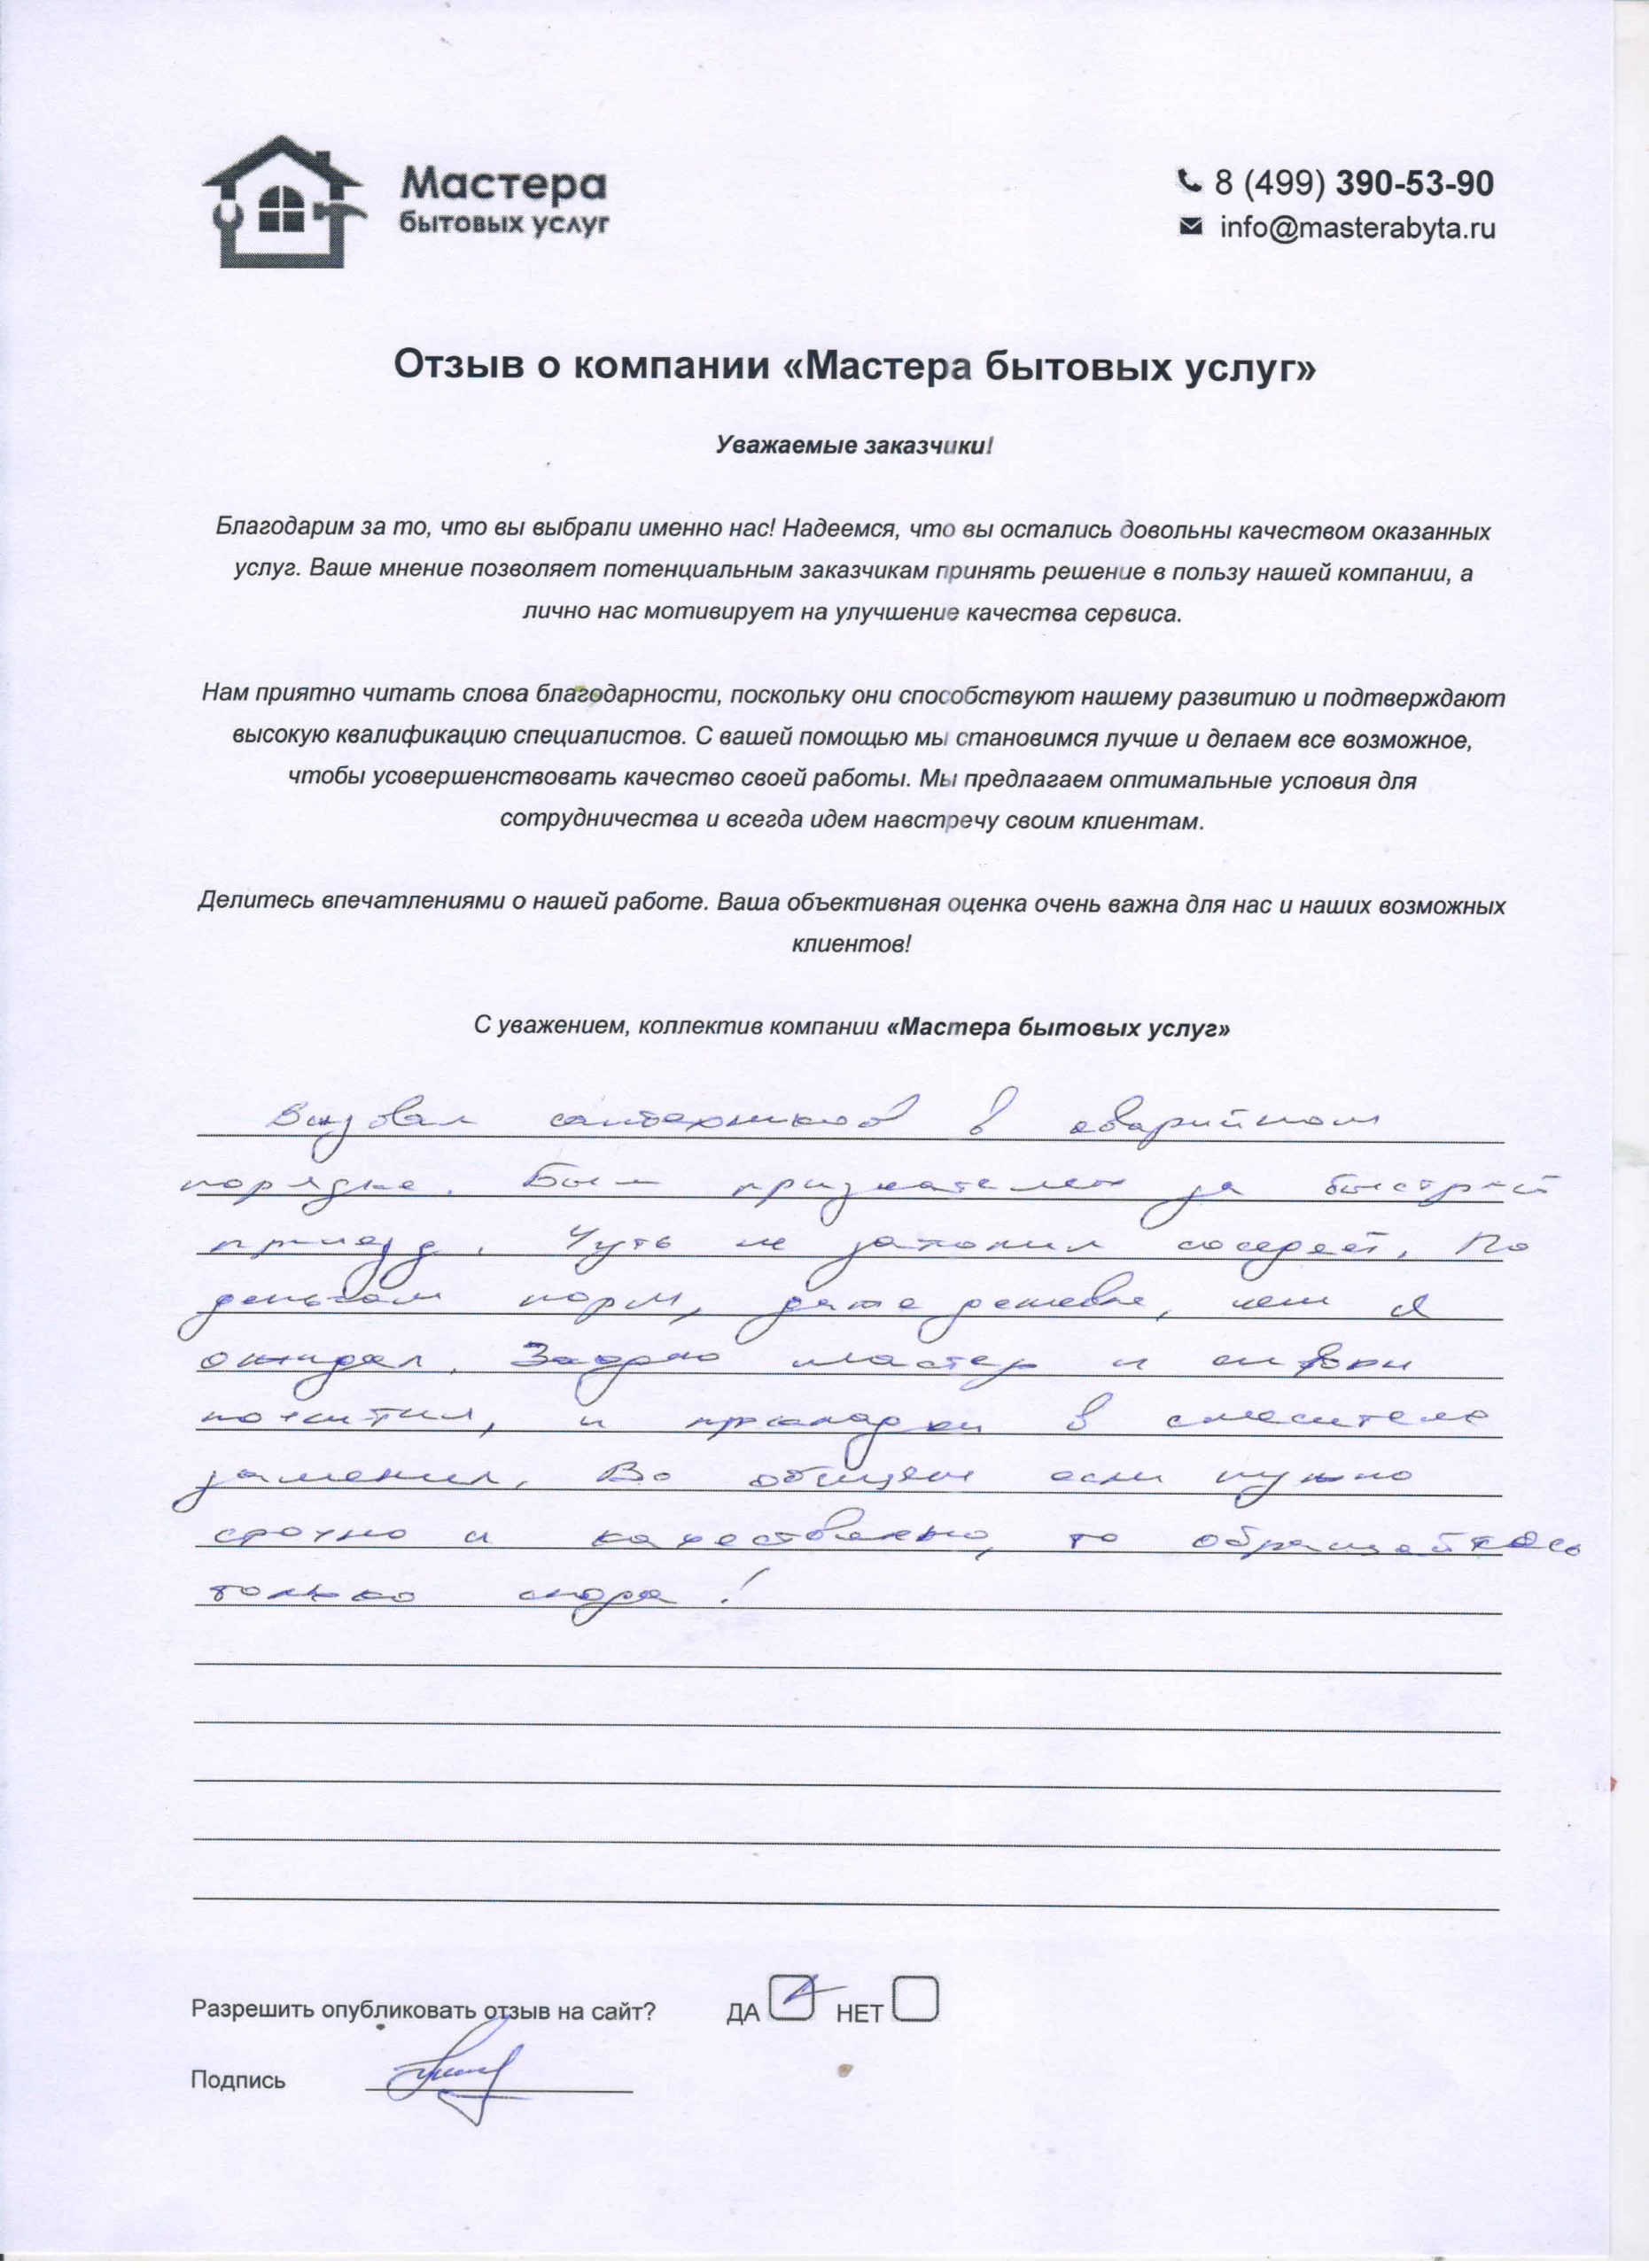 Мастера
бытовых услуг
8 (499) 390-53-90
info@masterabyta.ru
Отзыв о компании «Мастера бытовых услуг»
Уважаемые заказчики!
Благодарим за то, что вы выбрали именно нас! Надеемся, что вы остались довольны качеством оказанных
услуг. Ваше мнение позволяет потенциальным заказчикам принять решение в пользу нашей компании, а
лично нас мотивирует на улучшение качества сервиса.
Нам приятно читать слова благодарности, поскольку они способствуют нашему развитию и подтверждают
высокую квалификацию специалистов. С вашей помощью мы становимся лучше и делаем все возможное,
чтобы усовершенствовать качество своей работы. Мы предлагаем оптимальные условия для
сотрудничества и всегда идем навстречу своим клиентам.
Делитесь впечатлениями о нашей работе. Ваша объективная оценка очень важна для нас и наших возможных
клиентов!
С уважением, коллектив компании «Мастера бытовых услуг»
Вызвал сантехников в аварийном
порядке. Был признателен за быстрый
приезд. Чуть не затопил соседей. По
деньгам норм, даже дешевле, чем я
ожидал. Заодно мастер и сифон
почистил, и прокладки в смесителе
заменил. Во общем если нужно
срочно и качественно, то обращайтесь
только сюда!
Разрешить опубликовать отзыв на сайт? ДА НЕТ
Подпись